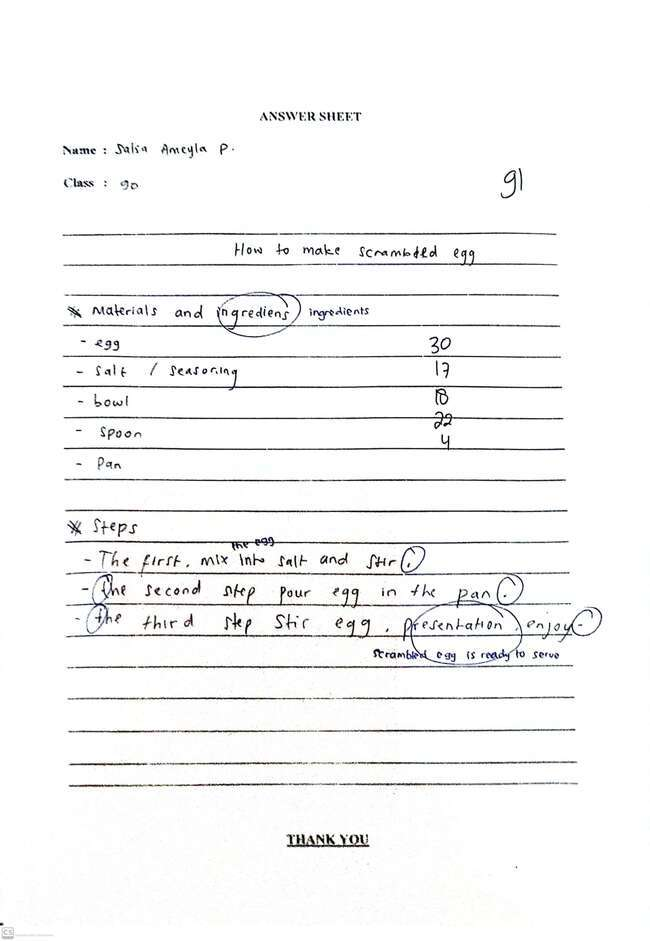 ANSWER SHEET
Name : Salsa Ameyla P.
Class : 90
91
How to make scrambled egg
* Materials and ingrediens ingredients
- egg 30
- Salt / Seasoning 17
- bowl 18
- Spoon 22
4
- Pan
* Steps
the egg
- The first, mix into salt and stir.
- The second step pour egg in the pan.
- the third step stir egg, presentation, enjoy-
scrambled egg is ready to serve
THANK YOU
CS